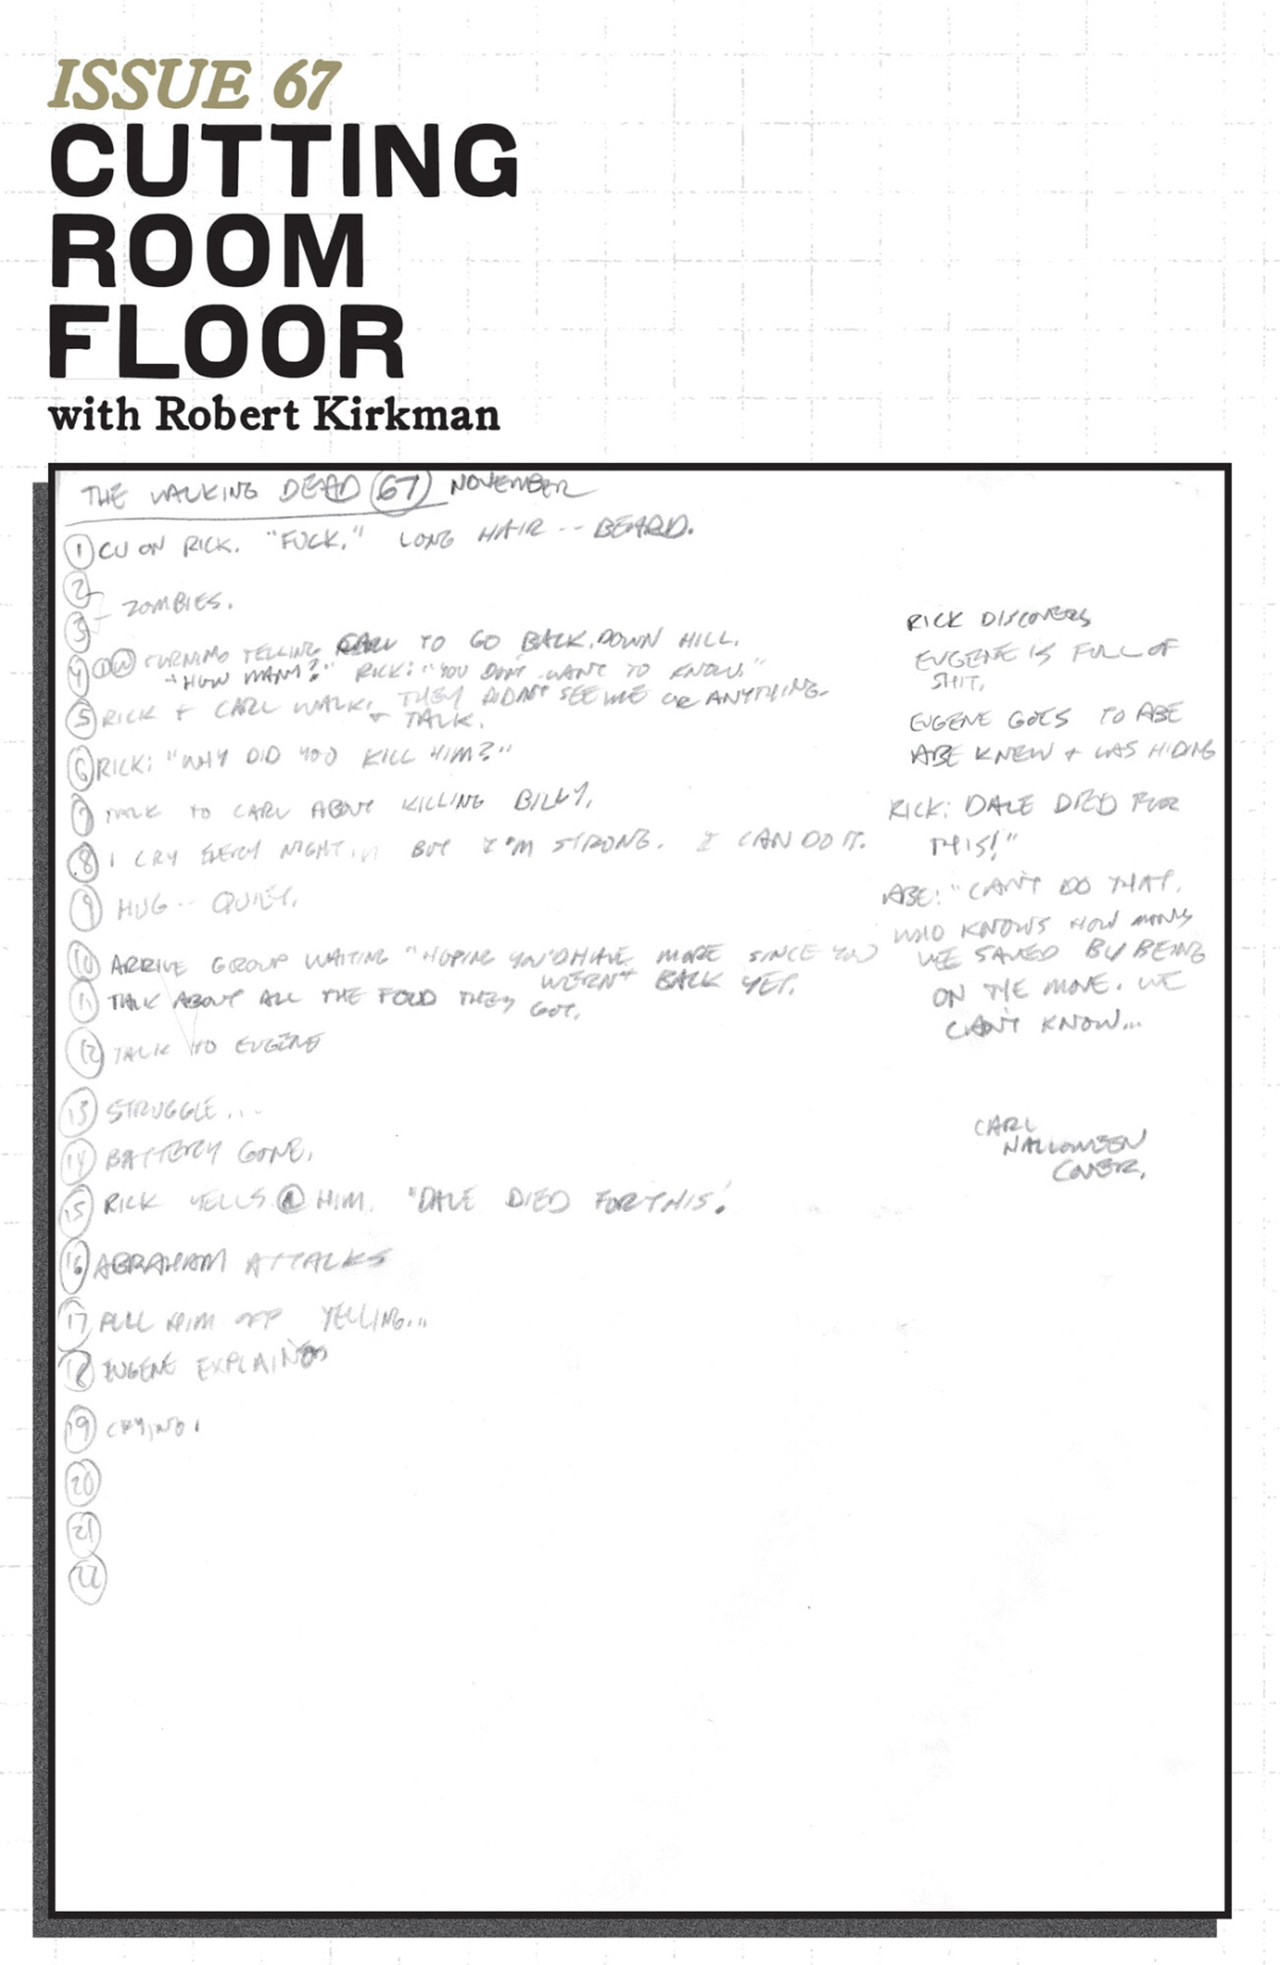 ISSUE 67
CUTTING
ROOM
FLOOR
with Robert Kirkman
THE WALKING DEAD 67 NOVEMBER
1 CU ON RICK. "FUCK." LONG HAIR -- BEARD.
2
3 - ZOMBIES.
4 TURNING TELLING CARL TO GO BACK DOWN HILL.
"HOW MANY?" RICK: "YOU DON'T WANT TO KNOW."
5 RICK + CARL WALK. THEY DIDN'T SEE ME OR ANYTHING.
+ TALK.
6 RICK: "WHY DID YOU KILL HIM?"
7 TALK TO CARL ABOUT KILLING BILLY.
8 I CRY EVERY NIGHT... BUT I'M STRONG. I CAN DO IT.
9 HUG -- QUIET.
10 ARRIVE GROUP WAITING "HOPING YOU'D HAVE MORE SINCE YOU
WERN'T BACK YET.
11 TALK ABOUT ALL THE FOOD THEY GOT.
12 TALK TO EUGENE
13 STRUGGLE...
14 BATTERY GONE.
15 RICK YELLS @ HIM. "DALE DIED FOR THIS!
16 ABRAHAM ATTACKS
17 PULL HIM OFF YELLING...
18 EUGENE EXPLAINS
19 CRYING.
20
21
22
RICK DISCOVERS
EUGENE IS FULL OF
SHIT.
EUGENE GOES TO ABE
ABE KNEW + WAS HIDING
RICK: DALE DIED FOR
THIS!"
ABE: "CAN'T DO THAT.
WHO KNOWS HOW MANY
WE SAVED BY BEING
ON THE MOVE. WE
CAN'T KNOW...
CARL
HALLOWEEN
COVER.